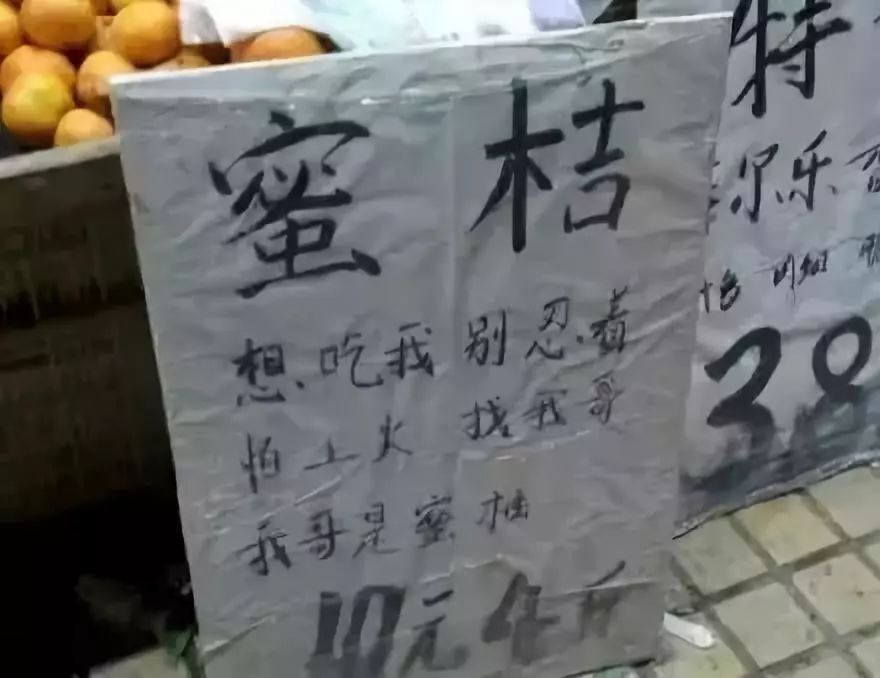 蜜桔
想吃我 别忍着
怕上火 找我哥
我哥是蜜柚
10元4斤
特
尔乐
38